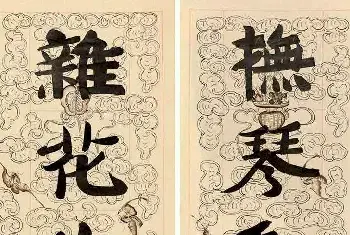 撫琴
雜花